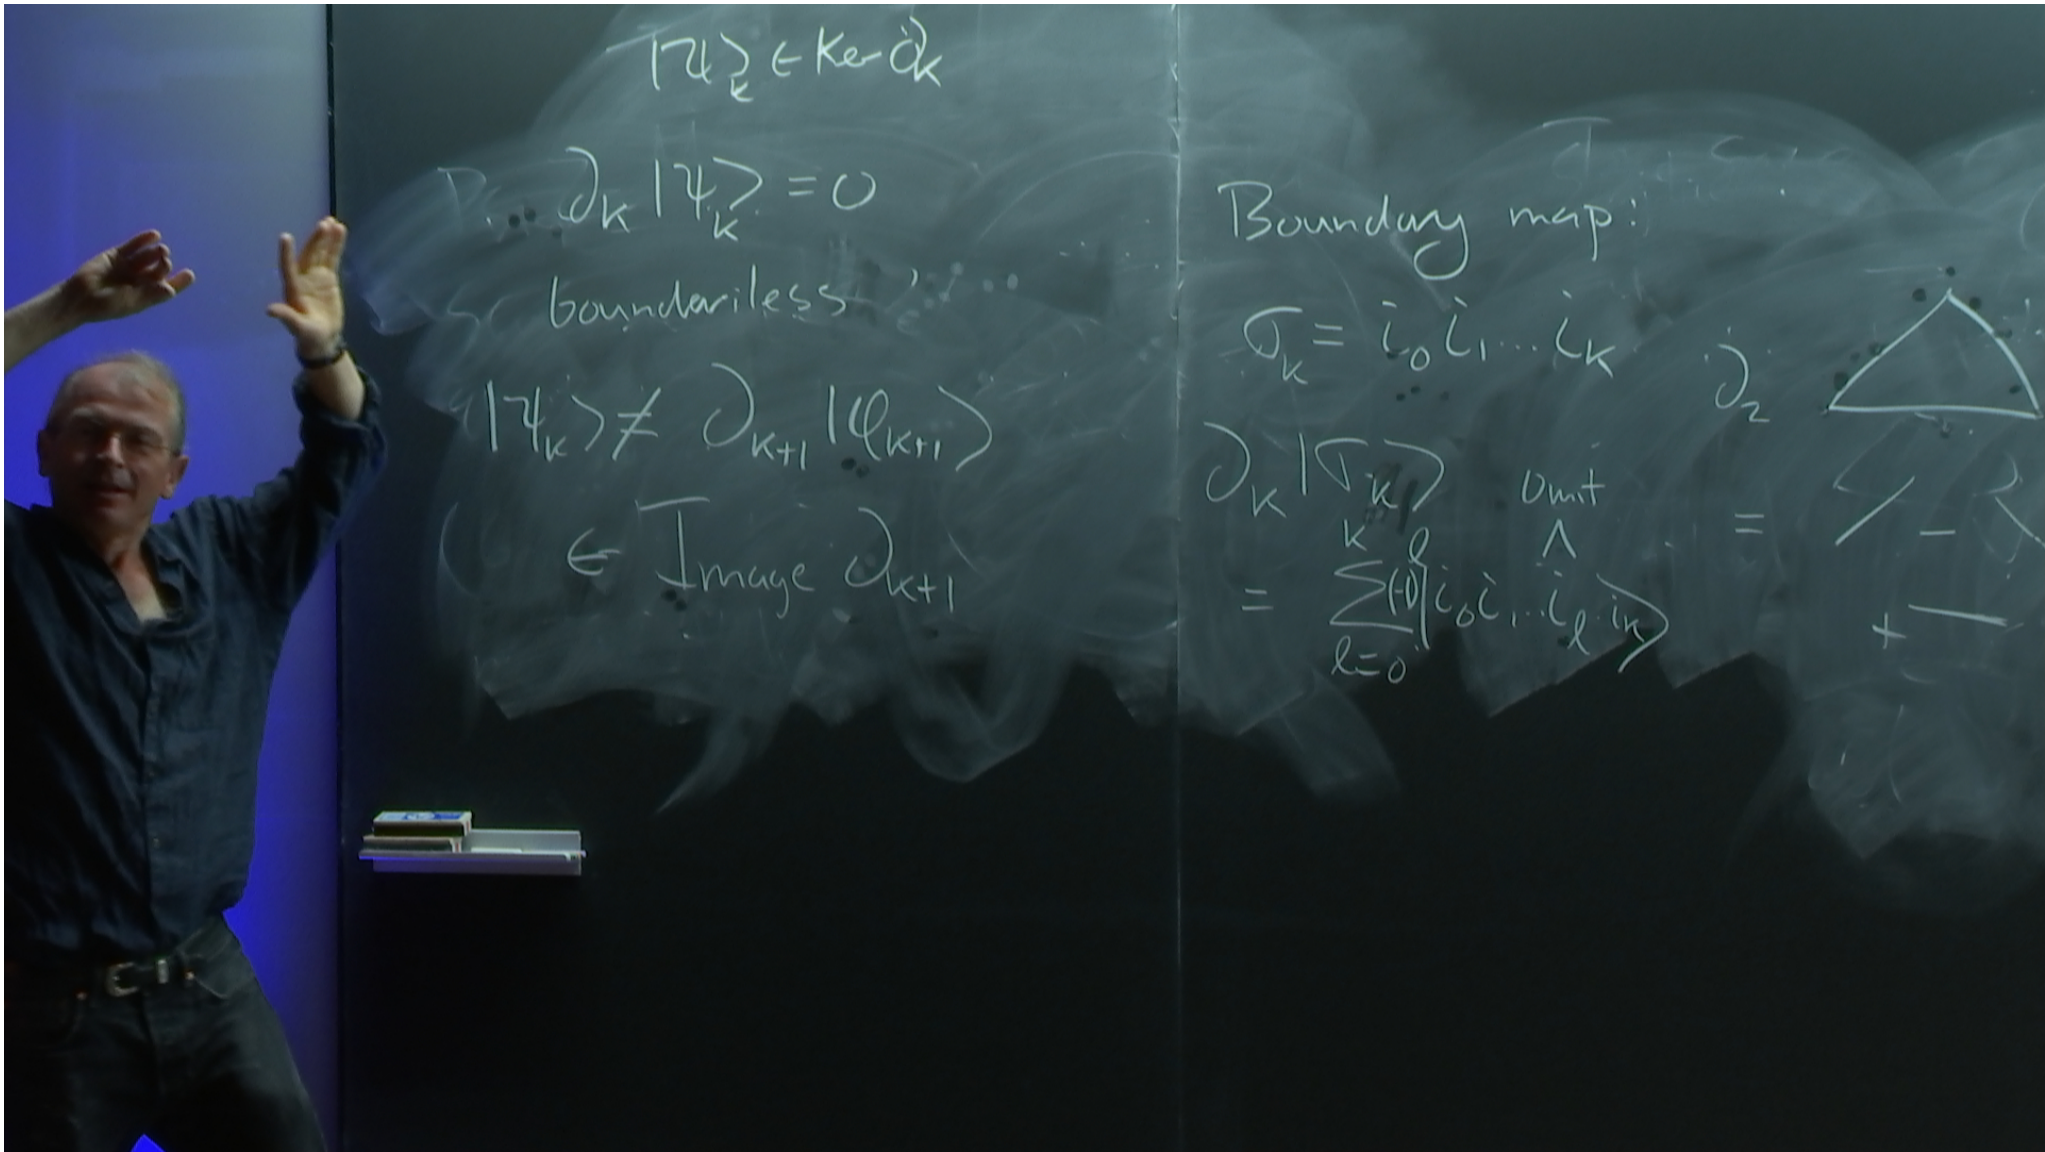 |ψ⟩_k ∈ Ker ∂_k
∂_k |ψ_k⟩ = 0
boundariless
|ψ_k⟩ ≠ ∂_{k+1} |φ_{k+1}⟩
∈ Image ∂_{k+1}
Boundary map:
σ_k = i_0 i_1 ... i_k
∂_k |σ_k⟩
omit
= Σ_{l=0}^{k} (-1)^l |i_0 i_1 ... î_l .. i_k⟩
∂_2
= −
+